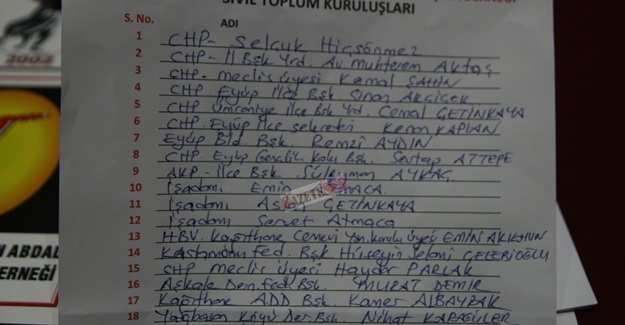 SİVİL TOPLUM KURULUŞLARI
S. No. ADI
1 CHP- Selçuk Hiçsönmez
2 CHP- İl Bşk Yrd. Av Muhterem Aktaş
3 CHP. Meclis Üyesi Kemal ŞAHİN
4 CHP Eyüp İlçe Bşk Sinan Akçiçek
5 CHP Ümraniye İlçe Bşk Yrd. Cemal ÇETİNKAYA
6 CHP. Eyüp İlçe Sekreteri Kenan KAPLAN
7 Eyüp Bld. Bşk. Remzi AYDIN
8 CHP. Eyüp Gençlik Kolu Bşk. Sertap ATTEPE
9 AKP- İlçe Bşk. Süleyman AYKAÇ
10 İşadamı Emin
11 İşadamı ÇETİNKAYA
12 İşadamı Servet Atmaca
13 HBV Kağıthane Cemevi Yön. kurulu üyesi EMİN AKKHUN
14 Kastamonu Fed. Bşk Hüseyin Selami ÇELEBİOĞLU
15 CHP Meclis Üyesi Haydar PARLAK
16 Aşkale Dern. Fed. Bşk. MURAT DEMİR
17 Kağıthane ADD Bşk. Kamer ALBAYRAK
18 Yağbasan Köyü Der Bşk. Nihat KARAGÜLLER
GAZETE
2002
N ABDAL
ERNEĞİ